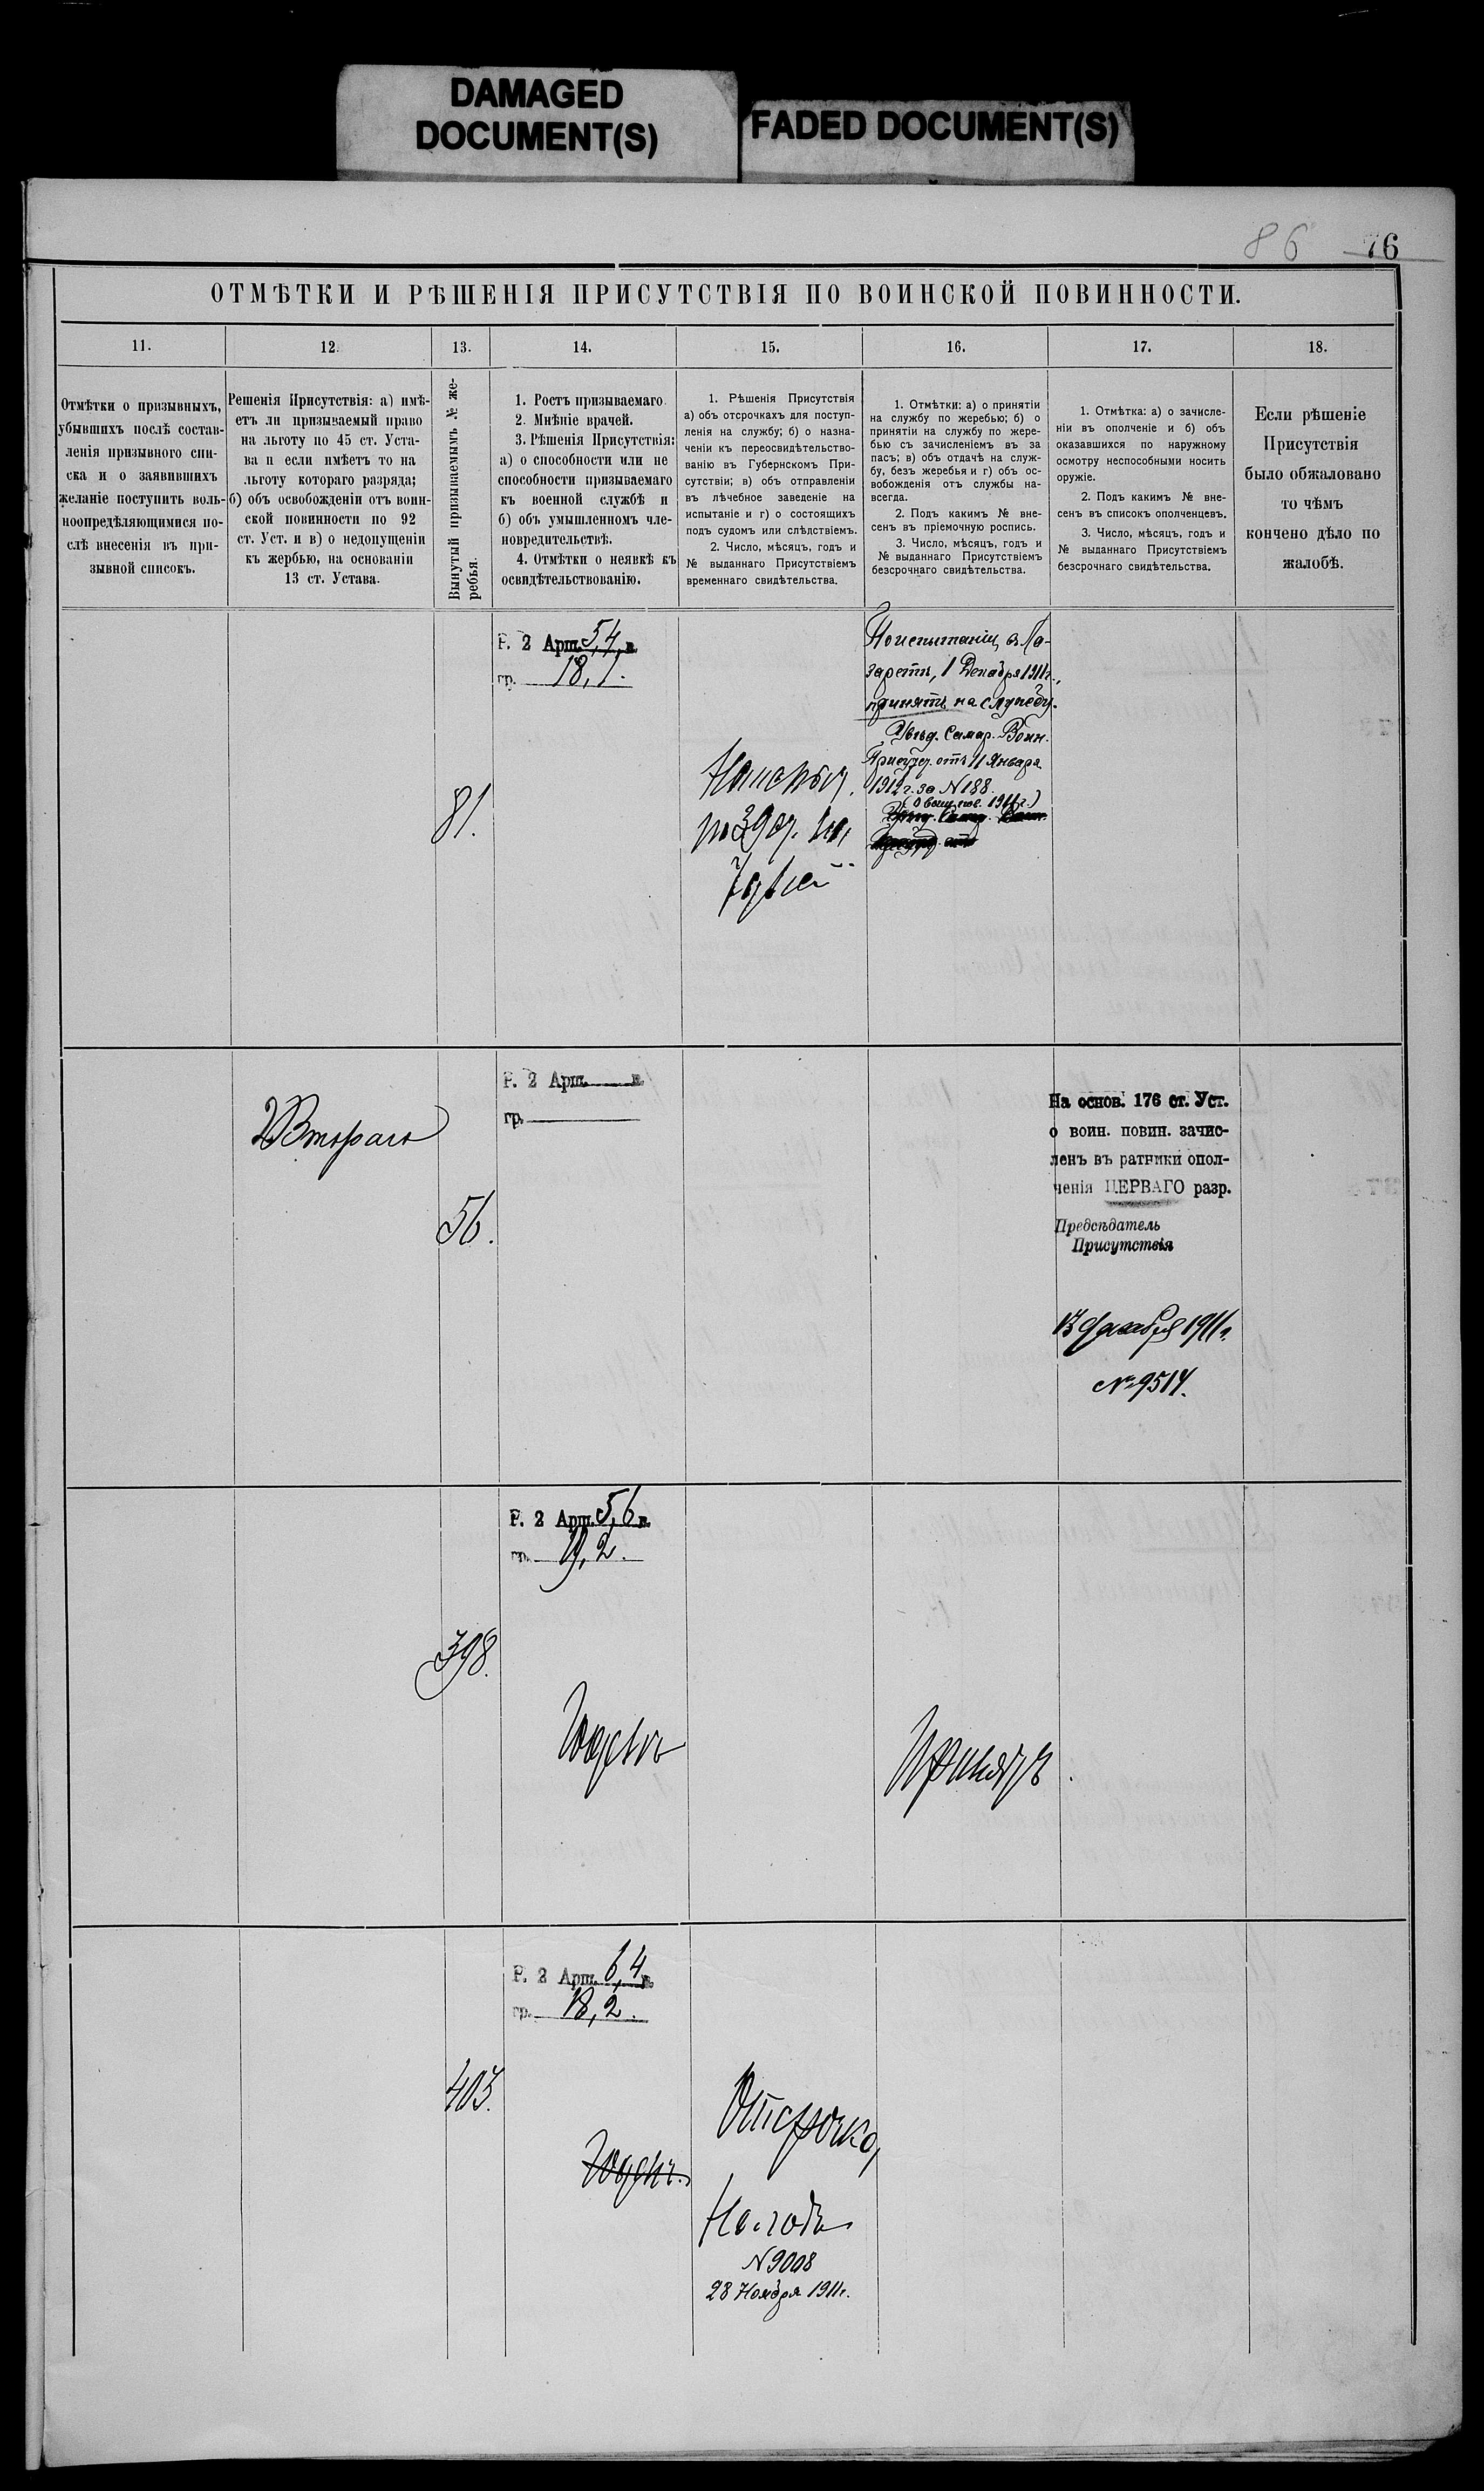 DAMAGED
DOCUMENT(S)
FADED DOCUMENT(S)
86 76
ОТМѢТКИ И РѢШЕНІЯ ПРИСУТСТВІЯ ПО ВОИНСКОЙ ПОВИННОСТИ.
11.
12.
13.
14.
15.
16.
17.
18.
Отмѣтки о призывныхъ,
убывшихъ послѣ состав-
ленія призывного спи-
ска и о заявившихъ
желаніе поступить воль-
ноопредѣляющимися по-
слѣ внесенія въ при-
зывной списокъ.
Решенія Присутствія: а) имѣ-
етъ ли призываемый право
на льготу по 45 ст. Уста-
ва и если имѣетъ то на
льготу котораго разряда;
б) объ освобожденіи отъ воин-
ской повинности по 92
ст. Уст. и в) о недопущеніи
къ жербью, на основаніи
13 ст. Устава.
Вынутый призываемымъ № же-
ребья.
1. Ростъ призываемаго.
2. Мнѣніе врачей.
3. Рѣшенія Присутствія:
а) о способности или не
способности призываемаго
къ военной службѣ и
б) объ умышленномъ чле-
новредительствѣ.
4. Отмѣтки о неявкѣ къ
освидѣтельствованію.
1. Рѣшенія Присутствія
а) объ отсрочкахъ для поступ-
ленія на службу; б) о назна-
ченіи къ переосвидѣтельство-
ванію въ Губернскомъ При-
сутствіи; в) объ отправленіи
въ лѣчебное заведеніе на
испытаніе и г) о состоящихъ
подъ судомъ или слѣдствіемъ.
2. Число, мѣсяцъ, годъ и
№ выданнаго Присутствіемъ
временнаго свидѣтельства.
1. Отмѣтки: а) о принятіи
на службу по жеребью; б) о
принятіи на службу по жере-
бью съ зачисленіемъ въ за
пасъ; в) объ отдачѣ на служ-
бу, безъ жеребья и г) объ ос-
вобожденія отъ службы на-
всегда.
2. Подъ какимъ № вне-
сенъ въ пріемочную роспись.
3. Число, мѣсяцъ, годъ и
№ выданнаго Присутствіемъ
безсрочнаго свидѣтельства.
1. Отмѣтка: а) о зачисле-
ніи въ ополченіе и б) объ
оказавшихся по наружному
осмотру неспособными носить
оружіе.
2. Подъ какимъ № вне-
сенъ въ списокъ ополченцевъ.
3. Число, мѣсяцъ, годъ и
№ выданнаго Присутствіемъ
безсрочнаго свидѣтельства.
Если рѣшеніе
Присутствія
было обжаловано
то чѣмъ
кончено дѣло по
жалобѣ.
81.
Р. 2 Арш. 5,4 в.
гр. 18,1.
По испытаніи, въ Ла-
заретѣ, 1 Декабря 1911г.,
принятъ на службу.
Увѣд. Самар. Воин.
Присутс. отъ 11 Января
1912г. за N 188.
2 Втораго
56.
Р. 2 Арш. в.
гр.
На основ. 176 ст. Уст.
о воин. повин. зачис-
ленъ въ ратники опол-
ченія ПЕРВАГО разр.
Предсѣдатель
Присутствія
13 Декабря 1911г.
№ 9514.
398.
Р. 2 Арш. 5,6 в.
гр. 19,2.
Годенъ
Принятъ
403.
Р. 2 Арш. 6,4 в.
гр. 18,2.
Годенъ.
Отсрочка,
На годъ
N 9008
28 Ноября 1911г.